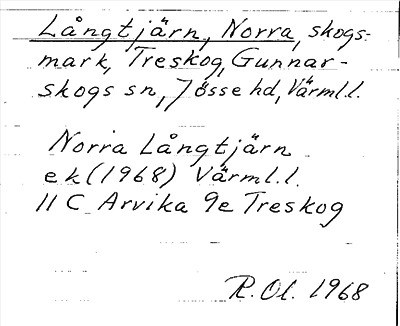 Långtjärn, Norra, skogs-
mark, Treskog, Gunnar-
skogs sn, Jösse hd, Värml.l.
Norra Långtjärn
ek (1968) Värml.l.
11 C Arvika 9e Treskog
R. Ol. 1968